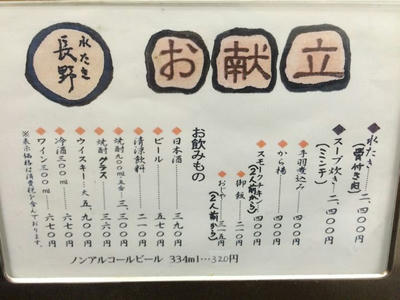 水たき
長野
お献立
◆水たき……二、四〇〇円
(骨付き肉)
◆スープ炊き…二、四〇〇円
(ミンチ)
◆手羽煮込み……四〇〇円
◆から揚……四〇〇円
◆スモークチキン…四〇〇円
(2人前から)
◆御飯……二一〇円
◆おじや……三一五円
(2人前から)
お飲みもの
◆日本酒……四〇〇円
◆ビール……五七〇円
◆清涼飲料……二一〇円
◆焼酎グラス……三六〇円
◆焼酎九〇〇ml五合…三、三〇〇円
◆ウイスキー大…五、九〇〇円
◆冷酒三〇〇ml……六七〇円
◆ワイン三〇〇ml……六七〇円
※表示価格は消費税が含んでおります。
ノンアルコールビール 334ml…320円